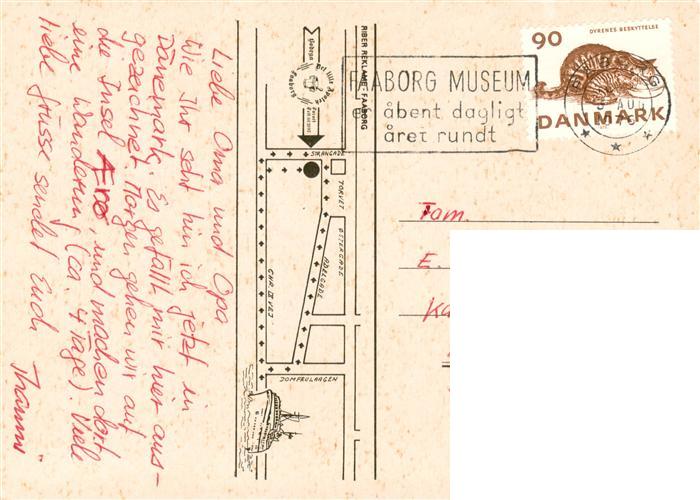 Liebe Oma und Opa
Wie Ihr seht bin ich jetzt in
Dänemark. Es gefällt mir hier aus-
gezeichnet. Morgen gehen wir auf
die Insel Ærø, und machen dort
eine Wanderung (ca. 4 Tage). Viele
liebe Grüsse sendet Euch
RIBER REKLAME, FAABORG
STRANGADE
TORVET
ØSTERGADE
ADELGADE
CHR. IX VEJ
DOMFRULAAGEN
FAABORG MUSEUM
er åbent dagligt
året rundt
DYRENES BESKYTTELSE
90
DANMARK
Fam.
E.